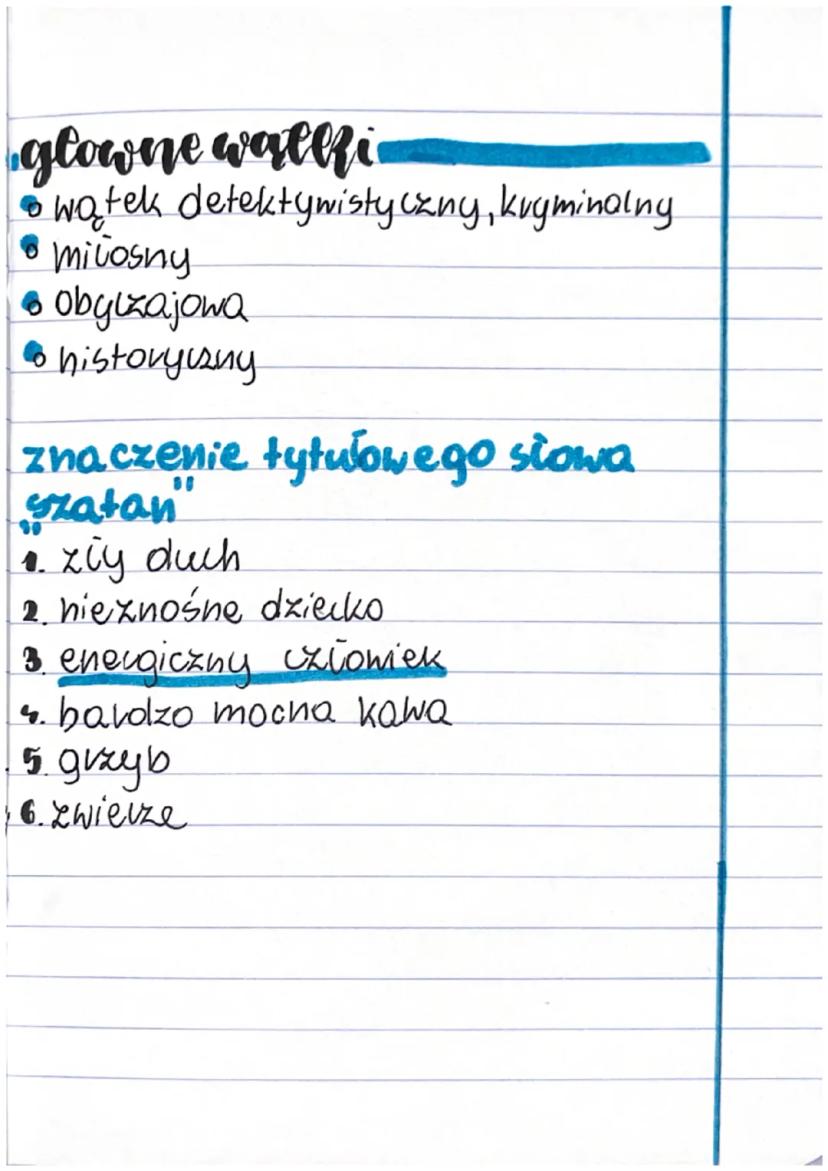 główne wątki
wątek detektywistyczny, kryminalny
miłosny
obyczajowa
historyczny
znaczenie tytułowego słowa
„szatan"
1. zły duch
2. nieznośne dziecko
3. energiczny człowiek
4. bardzo mocna kawa
5. grzyb
6. zwierze